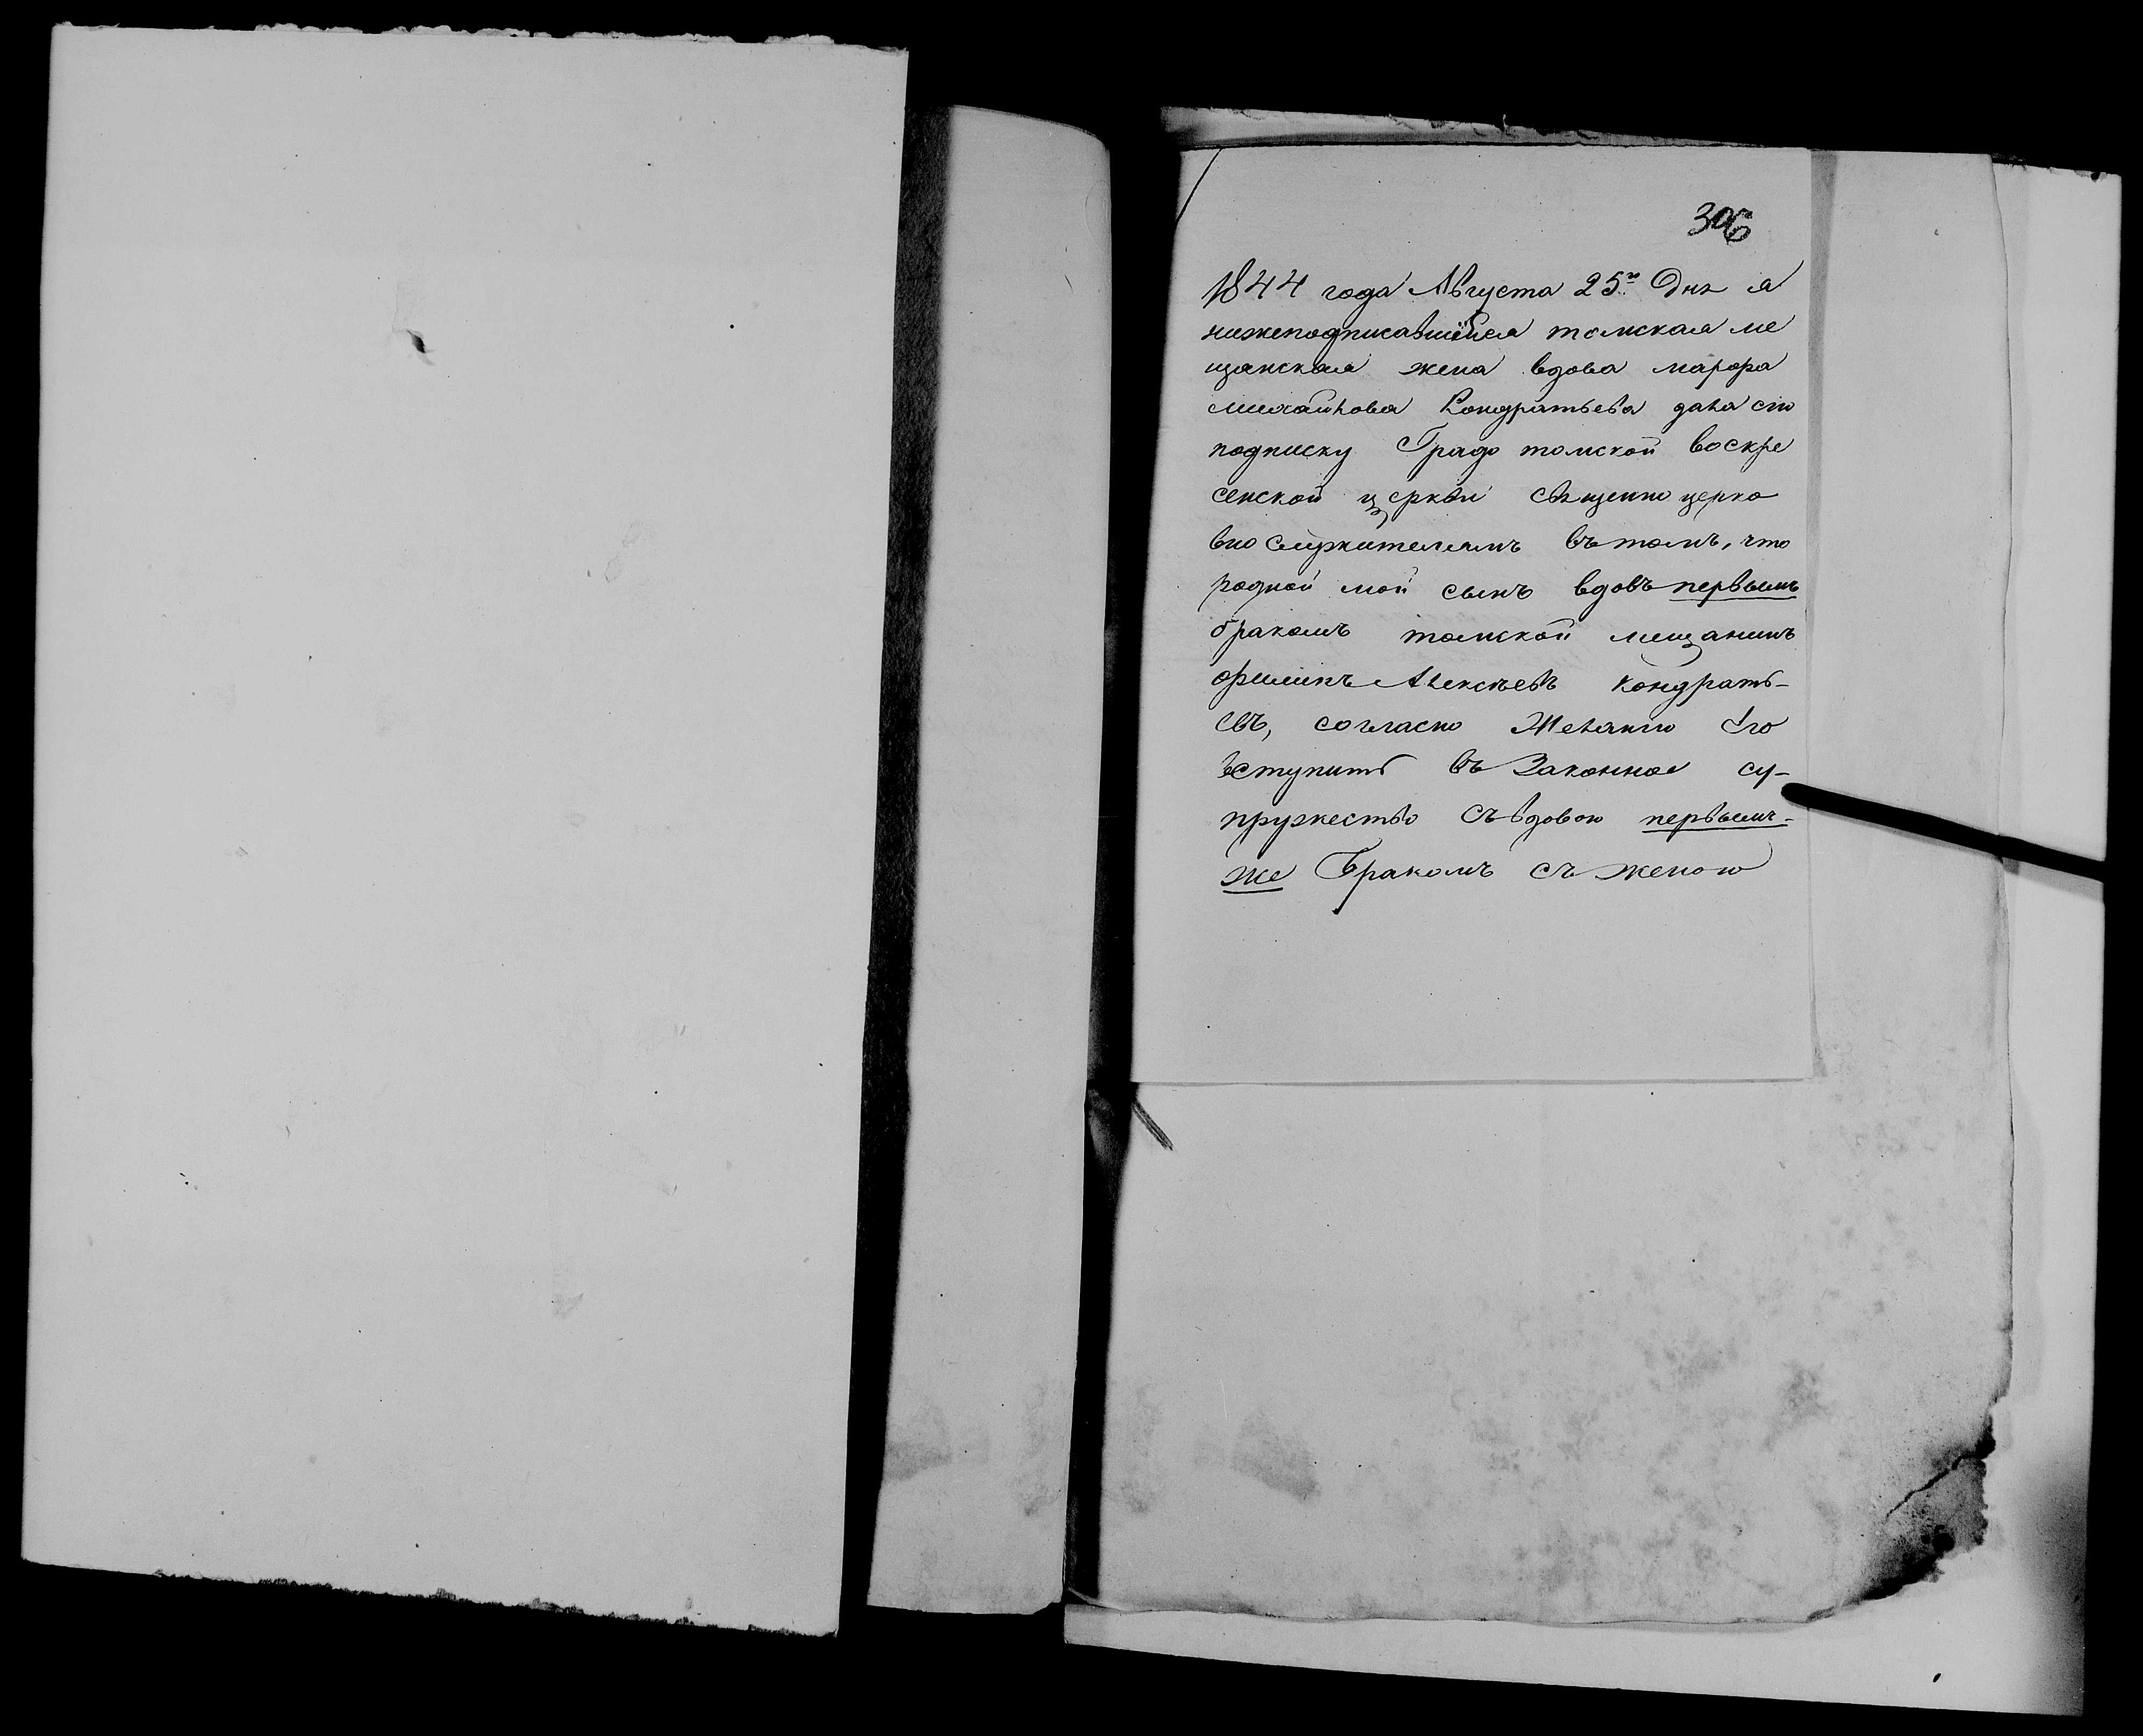 306
1844 года Августа 25го Дня я
нижеподписавшейся томская ме
щанская жена вдова марфа
михайлова Кондратьева дала сию
подписку Градо томской воскре
сенской церкви священно церко
вно служителямъ въ томъ, что
родной мой сынъ вдовъ первымъ
бракомъ томской мещанинъ
филипъ Алексѣевъ Кондрать-
евъ, согласно Желанию Его
вступить въ Законное су-
пружество съ вдовою первымъ-
же Бракомъ съ женою